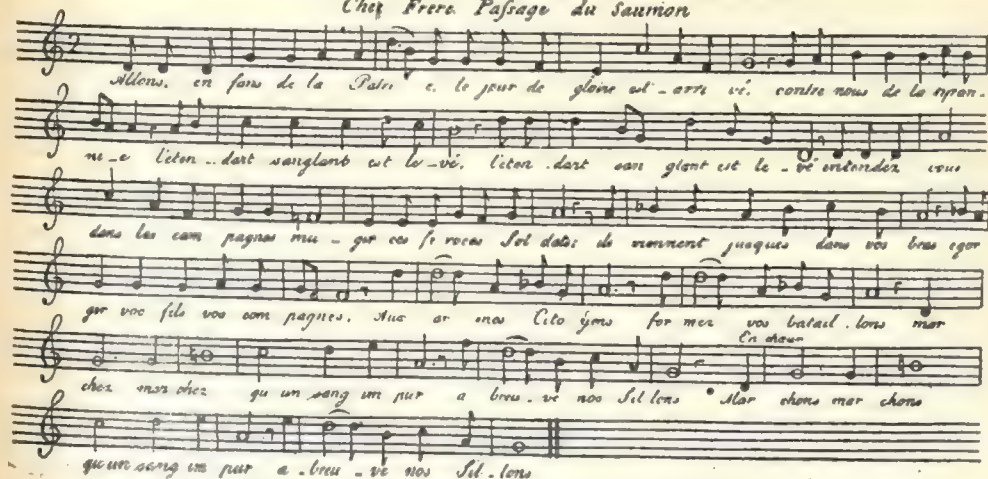 Chez Frere. Passage du Saumon
Allons, en fans de la Patri e, le jour de gloire est - arri vé, contre nous de la tiran-
ni-e l'eten-dart sanglant est le-vé, l'eten-dart san glant est le-vé entendez vous
dans les cam pagnes mu-gir ces fe roces Sol dats; ils viennent jusques dans vos bras egor
ger vos fils vos com pagnes. Aux ar mes Cito yens for mez vos batail-lons mar
En chœur
chez mar chez qu un sang im pur a breu-ve nos Sil lons Mar chons mar chons
qu'un sang im pur a-breu-ve nos Sil-lons